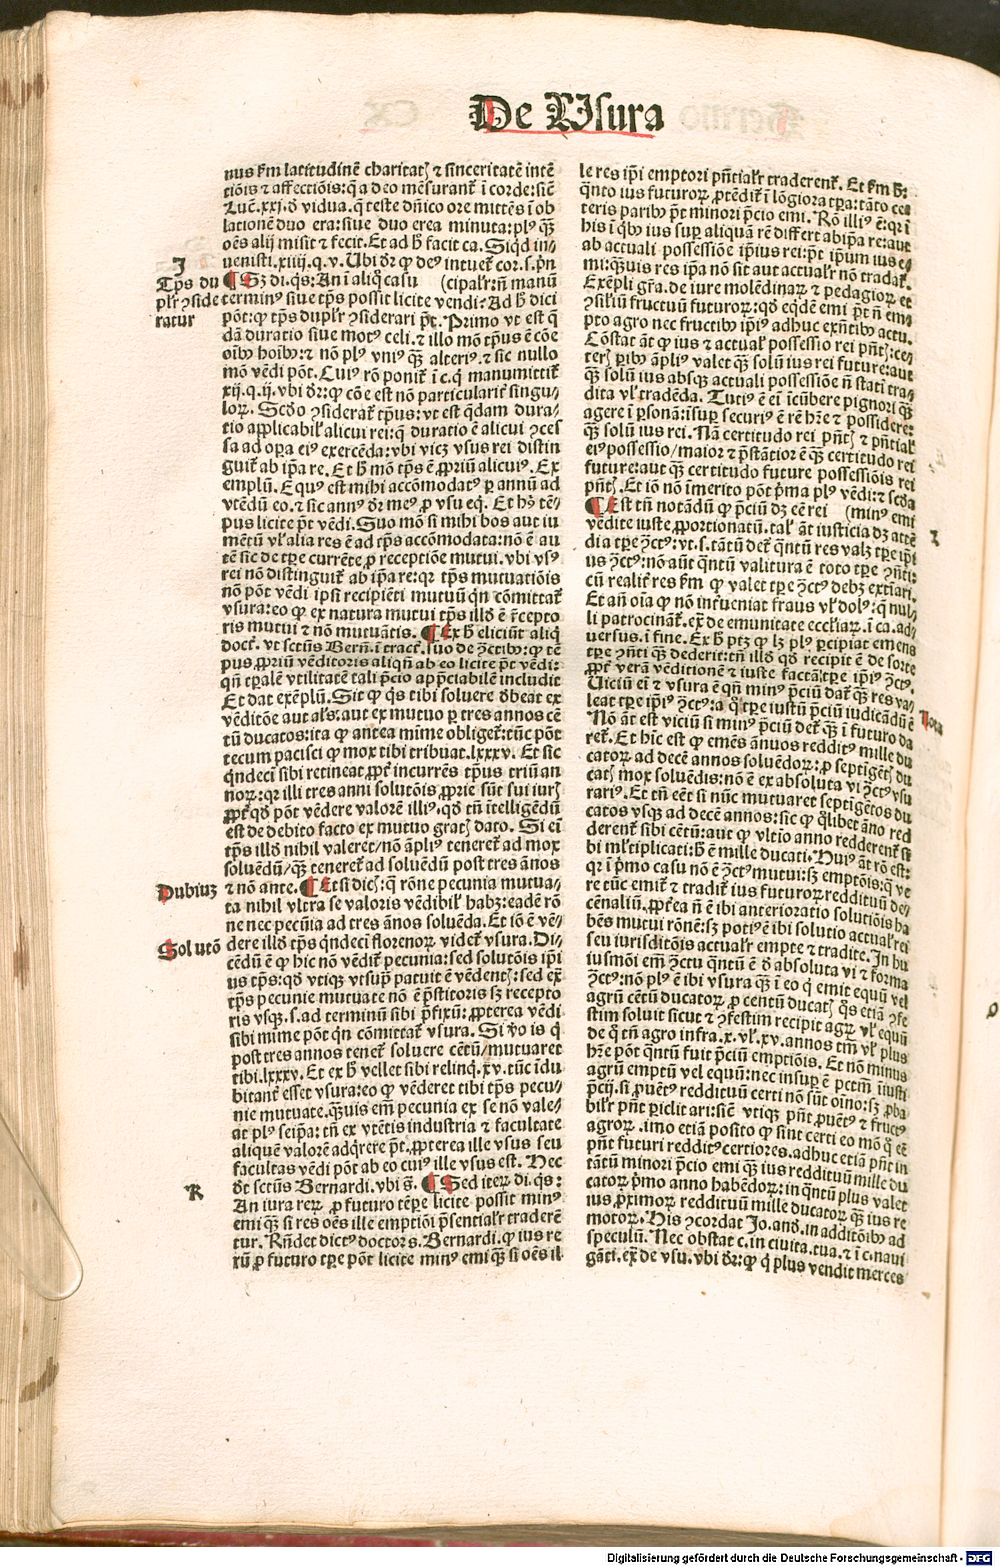 De Usura
nus ẜm latitudinē charitatꝭ ⁊ sinceritatē intē
tiōis ⁊ affectiōis: q̄ a deo mēsurant᷑ ī corde: sicē
Luc̄. xxj. d̄ vidua. q̄ teste dn̄ico ore mittēs ī ob
lationē duo era: siue duo erea minuta: plꝰ q̄ꝫ
oēs alij misit ⁊ fecit. Et ad h̄ facit ca. Siq̇d in⸗
uenisti. xiiij. q. v. Ubi dr̄ ꝙ deꝰ intuet᷑ cor. s. p̄n
¶ Sꝫ di. q̄s: An ī aliq̊ casu (cipalr̄: ꝫ n̄ manū
terminꝰ siue tp̄s possit licite vendi? Ad h̄ dici
pōt: ꝙ tp̄s duplr̄ ꝯsiderari p̄t. Primo vt est q̄
dā duratio siue motꝰ celi. ⁊ illo mō tp̄us ē cōe
oībꝰ hoībꝰ: ⁊ nō plꝰ vniꝰ q̄ꝫ alteriꝰ. ⁊ sic nullo
mō vēdi pōt. Cuiꝰ rō ponit᷑ ī c. q̇ manumittit᷑
xij. q. ij. vbi dr̄: ꝙ cōe est nō particularit᷑ singu⸗
loꝝ. Scd̄o ꝯsiderat᷑ tp̄us: vt est q̄dam dura⸗
tio applicabil᷑ alicui rei: q̄ duratio ē alicui ꝯces
sa ad oꝑa eiꝰ exercēda: vbi vicꝫ vsus rei distin
guit᷑ ab ip̄a re. Et h̄ mō tp̄s ē ꝓpriū alicuiꝰ. Ex
emplū. Equꝰ est mihi accōmodatꝰ ꝑ annū ad
vtēdū eo. ⁊ sic annꝰ dr̄ meꝰ ꝓ vsu eq̇. Et hꝰ tē⸗
pus licite p̄t vēdi. Suo mō si mihi bos aut iu
mētū vl̄ alia res ē ad tp̄s accōmodata: nō ē au
tē sic de tp̄e currēte ꝓ receptiōe mutui. vbi vsꝰ
rei nō distinguit᷑ ab ip̄a re: qꝛ tp̄s mutuatiōis
nō pōt vēdi ipsi recipiēti mutuū qn̄ cōmittat᷑
vsura: eo ꝙ ex natura mutui tp̄s illd̄ ē r̄cepto
ris mutui ⁊ nō mutuātis. ¶ Ex h̄ eliciūt aliq̇
doct. vt sctūs Bern̄. ī tract. suo de ꝯctibꝰ: ꝙ tē
pus ꝓpriū vēditoris aliqn̄ ab eo licite p̄t vēdi:
qn̄ tꝑalē vtilitatē tali p̄cio app̄ciabilē includit
Et dat exēplū. Sit ꝙ q̄s tibi soluere d̄beat ex
vēditōe aut al̄s: aut ex mutuo ꝑ tres annos cē
tū ducatos: ita ꝙ antea mime obliget᷑: tūc pōt
tecum pacisci ꝙ mox tibi tribuat. lxxxv. Et sic
q̇ndeci sibi retineat ꝓpt̄ incurrēs tp̄us triū an
noꝝ: qꝛ illi tres anni solutōis ꝓprie sūt sui iurꝭ
ꝓpt̄ qd̄ pōt vēdere valorē illiꝰ. qd̄ tn̄ ītelligēdū
est de debito facto ex mutuo gratꝭ dato. Si eī
tp̄s illd̄ nihil valeret/ nō āpliꝰ teneret᷑ ad mox
soluēdū/ q̄ꝫ teneret᷑ ad soluēdū post tres ānos
⁊ nō ante. ¶ Et si dicꝭ: q̄ rōne pecunia mutua⸗
ta nihil vltra se valoris vēdibil᷑ habꝫ: eadē rō
ne nec pecūia ad tres ānos soluēda. Et iō ē vē⸗
dere illd̄ tp̄s q̇ndeci florenoꝝ videt᷑ vsura. Di⸗
cēdū ē ꝙ hic nō vēdit᷑ pecunia: sed solutōis ip̄i
us tp̄s: qd̄ vtiqꝫ vt sup̄ patuit ē vēdentꝭ: sed ex
tp̄s pecunie mutuate nō ē p̄stitoris sꝫ recepto
ris vsqꝫ. s. ad terminū sibi p̄fixū: ꝓpterea vēdi
sibi mime pōt qn̄ cōmittat᷑ vsura. Si v̄o is q̇
post tres annos tenet᷑ soluere cētū/ mutuaret
tibi. lxxxv. Et ex h̄ vellet sibi relinq̇. xv. tūc īdu
bitant᷑ esset vsura: eo ꝙ vēderet tibi tp̄s pecu⸗
nie mutuate. q̄ꝫuis em̄ pecunia ex se nō vale⸗
at plꝰ seip̄a: tn̄ ex vtētis industria ⁊ facultate
aliquē valorē adq̇rere p̄t. ꝓpterea ille vsus seu
facultas vēdi pōt ab eo cuiꝰ ille vsus est. Nec
d̄t sctūs Bernardi. vbi s̄. ¶ Sed iteꝝ di. q̄s:
An iura reꝝ ꝓ futuro tēꝑe licite possit minꝰ
emi q̄ꝫ si res oēs ille emptiōi p̄sentialr̄ traderē
tur. Rn̄det dictꝰ doctor s. Bernardi. ꝙ ius re
rū ꝓ futuro tꝑe pōt licite minꝰ emi q̄ꝫ si oēs il
J
Tp̄s du
plr̄ ꝯside
ratur
Dubiuꝫ
Solutō
K
le res ip̄i emptori pn̄tialr̄ traderent᷑. Et ẜm h̄:
q̇nto ius futuroꝝ ꝓtēdit᷑ ī lōgiora tꝑa: tāto ce⸗
teris paribꝰ p̄t minori p̄cio emi. Rō illiꝰ ē: qꝛ ī
his ī q̇bꝰ ius suꝑ aliquā rē differt ab ip̄a re: aut
ab actuali possessiōe ip̄ius rei: p̄t ip̄um ius e⸗
mi: q̄ꝫuis res ip̄a nō sit aut actualr̄ nō tradat᷑.
Exēpli gr̄a. de iure molēdinaꝝ ⁊ pedagioꝝ et
ꝯsiliū fructuū futuroꝝ: qd̄ eq̇dē emi p̄t n̄ em⸗
pto agro nec fructibꝰ ip̄iꝰ adhuc exn̄tibꝰ actu.
Cōstat āt ꝙ ius ⁊ actual᷑ possessio rei pn̄tꝭ: ce⸗
terꝭ ꝑibꝰ āpliꝰ valet q̄ꝫ solū ius rei future: aut
q̄ꝫ solū ius absqꝫ actuali possessiōe n̄ statī tra⸗
dita vl̄ tradēda. Tutiꝰ ē eī īcūbere pignori q̄ꝫ
agere ī ꝑsonā: īsuꝑ securiꝰ ē rē hr̄e ⁊ possidere:
q̄ꝫ solū ius rei. Nā certitudo rei pn̄tꝭ ⁊ pn̄tial᷑
eiꝰ possessio/ maior ⁊ p̄stātior ē q̄ꝫ certitudo rei
future: aut q̄ꝫ certitudo future possessiōis rei
pn̄tꝭ. Et iō nō īmerito pōt p̄ma plꝰ vēdi: ⁊ scd̄a
¶ Est tn̄ notādū ꝙ p̄ciū dꝫ eē rei (minꝰ emi
vēdite iuste ꝓportionatū. tal᷑ āt iusticia dꝫ attē
di a tꝑe ꝯctꝰ: vt. s. tātū det᷑ q̇ntū res valꝫ tꝑe ip̄i
us ꝯctꝰ: nō aūt q̇ntū valitura ē toto tꝑe ꝯn̄ti:
cū realit᷑ res ẜm ꝙ valet tꝑe ꝯctꝰ debꝫ extīari.
Et an̄ oīa ꝙ nō int᷑ueniat fraus vl̄ dolꝰ: q̄ nul⸗
li patrocinant᷑. ex̄ de emunitate eccl̄iaꝝ. ī ca. ad⸗
uersus. ī fine. Ex h̄ ptꝫ ꝙ lꝫ plꝰ ꝑcipiat emens
tꝑe ꝯn̄ti q̄ꝫ dederit: tn̄ illd̄ qd̄ recipit ē de sorte
ꝓpt̄ verā vēditionē ⁊ iuste factā: tꝑe ip̄iꝰ ꝯctꝰ.
Uiciū eī ⁊ vsura ē qn̄ minꝰ p̄ciū dat᷑ q̄ꝫ res va⸗
leat tꝑe ip̄iꝰ ꝯctꝰ: a q̊ tꝑe iustū p̄ciū iudicādū ē
Nō āt est viciū si minꝰ p̄ciū det᷑ q̄ꝫ ī futuro da
ret᷑. Et hīc est ꝙ emēs ānuos redditꝰ mille du
catoꝝ ad decē annos soluēdoꝝ: ꝓ septigētꝭ du
catꝭ mox soluēdis: nō ē ex absoluta vi ꝯctꝰ vsu
rariꝰ. Et tn̄ eēt si nūc mutuaret septigētos du
catos vsqꝫ ad decē annos: sic ꝙ q̊libet āno red
derent᷑ sibi cētū: aut ꝙ vltīo anno redderent᷑ si
bi ml̄tiplicati: h̄ ē mille ducati. Huiꝰ āt rō est:
qꝛ ī p̄mo casu nō ē ꝯctꝰ mutui: sꝫ emptōis: q̇ ve
re tūc emit᷑ ⁊ tradit᷑ ius futuroꝝ reddituū de⸗
cēnaliū. ꝓpt̄ea n̄ ē ibi anterioratio solutiōis ha
bēs mutui rōnē: sꝫ potiꝰ ē ibi solutio actual᷑ rei
seu iurisditōis actualr̄ empte ⁊ tradite. In hu
iusmōi em̄ ꝯctu q̇ntū ē d̄ absoluta vi ⁊ forma
ꝯctꝰ: nō plꝰ ē ibi vsura q̄ꝫ ī eo q̇ emit equū vel
agrū cētū ducatoꝝ ꝓ centū ducatꝭ q̄s etiā ꝯfe
stim soluit sicut ⁊ ꝯfestim recipit agꝝ vl̄ equū
de q̊ tn̄ agro infra. x. vl̄. xv. annos tm̄ vl̄ plus
hr̄e pōt q̇ntū fuit p̄ciū emptiōis. Et nō minus
agrū emptū vel equū: nec insuꝑ ē pctm̄ īiusti
p̄cij. si ꝓuētꝰ reddituū certi nō sūt oīno: sꝫ ꝓba
bilr̄ pn̄t ꝑiclitari: siē vtiqꝫ pn̄t ꝓuētꝰ ⁊ fructꝰ
agroꝝ. imo etiā posito ꝙ sint certi eo mō q̊ eē
pn̄t futuri redditꝰ certiores. adhuc etiā pn̄t in
tātū minori p̄cio emi q̄ꝫ ius reddituū mille du
catoꝝ p̄mo anno habēdoꝝ: in q̇ntū plus valet
ius ꝓximoꝝ reddituū mille ducatoꝝ q̄ꝫ ius re
motoꝝ. His ꝯcordat Jo. and. in additōibꝰ ad
speculū. Nec obstat c. in ciuita. tua. ⁊ ī c. naui
gāti. ex̄ de vsu. vbi dr̄: ꝙ q̇ plus vendit merces
L
Nota
Digitalisierung gefördert durch die Deutsche Forschungsgemeinschaft - DFG